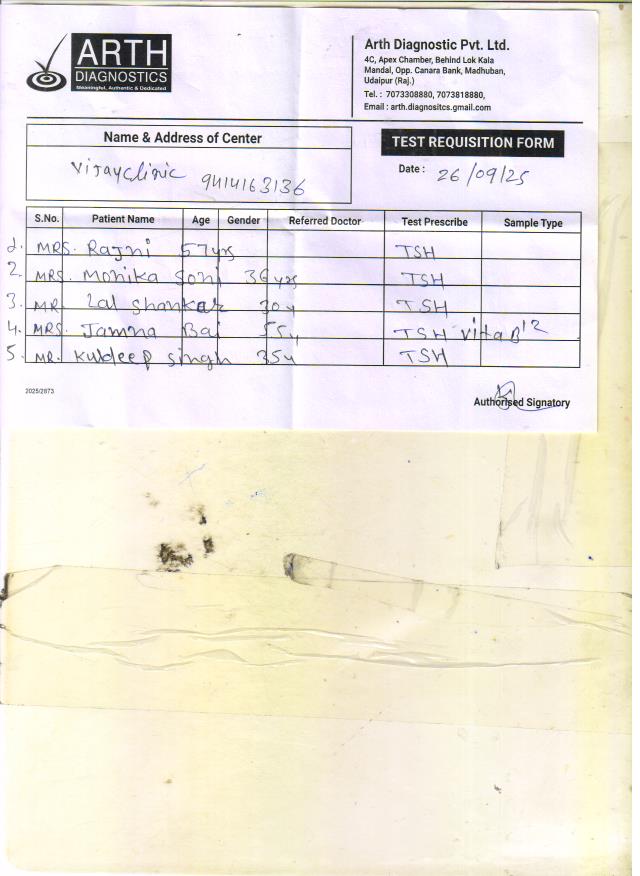 ARTH
DIAGNOSTICS
Meaningful, Authentic & Dedicated
Arth Diagnostic Pvt. Ltd.
4C, Apex Chamber, Behind Lok Kala
Mandal, Opp. Canara Bank, Madhuban,
Udaipur (Raj.)
Tel. : 7073308880, 7073818880,
Email : arth.diagnositcs.gmail.com
Name & Address of Center
Vijay clinic 9414163136
TEST REQUISITION FORM
Date : 26/09/25
S.No. Patient Name Age Gender Referred Doctor Test Prescribe Sample Type
1. MRS. Rajni 57yrs TSH
2. MRS. Monika Soni 36yrs TSH
3. MR Lal Shankar 30y TSH
4. MRS. Jamna Bai 55y TSH Vita B12
5. MR. Kuldeep singh 35y TSH
2025/2873
Authorised Signatory